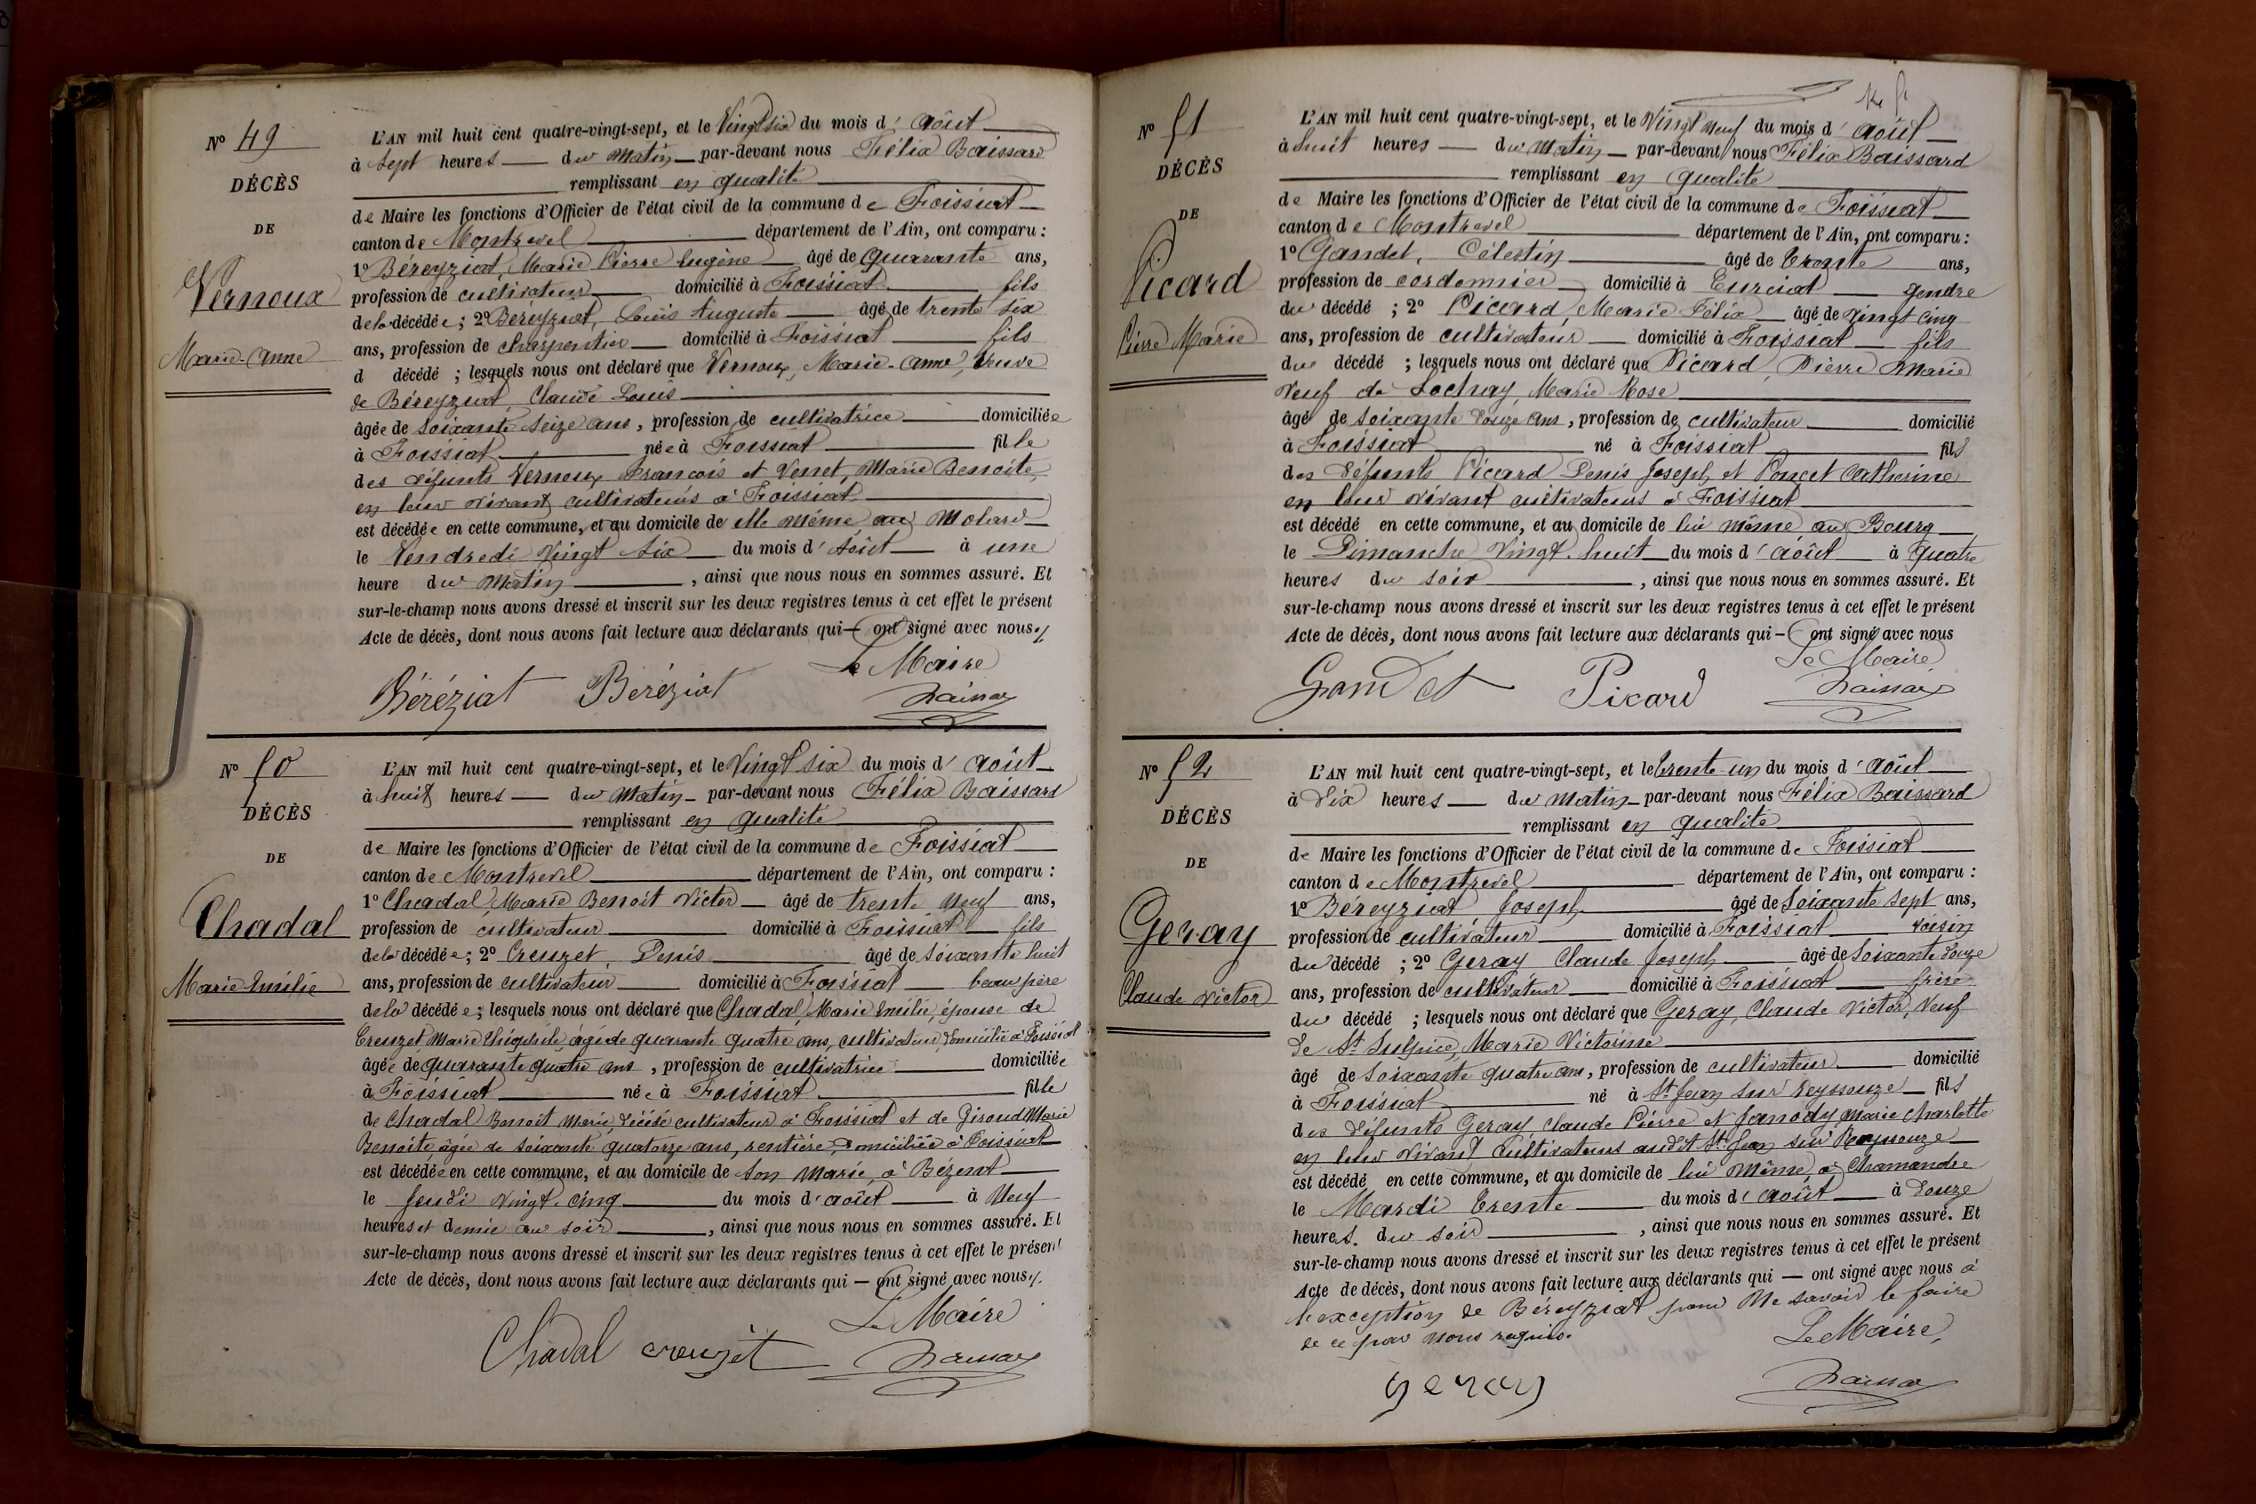 Nº 49
DÉCÈS
DE
Vernoux
Marie-Anne
L'AN mil huit cent quatre-vingt-sept, et le Vingt six du mois d'août
à sept heures du matin par-devant nous Félix Baissard
remplissant en qualité
de Maire les fonctions d'Officier de l'état civil de la commune de Foissiat
canton de Montrevel département de l'Ain, ont comparu :
1º Béreyziat, Marie Pierre Eugène âgé de quarante ans,
profession de cultivateur domicilié à Foissiat fils
de la décédée ; 2º Béreyziat, Louis Auguste âgé de trente six
ans, profession de charpentier domicilié à Foissiat fils
d décédé ; lesquels nous ont déclaré que Vernoux, Marie-Anne, veuve
de Béreyziat, Claude Louis
âgée de soixante seize ans, profession de cultivatrice domiciliée
à Foissiat née à Foissiat fille
des défunts Vernoux François et Venet, Marie Benoite,
en leur vivant cultivateurs à Foissiat
est décédée en cette commune, et au domicile de elle même au Molard
le Vendredi vingt six du mois d'août à une
heure du matin, ainsi que nous nous en sommes assuré. Et
sur-le-champ nous avons dressé et inscrit sur les deux registres tenus à cet effet le présent
Acte de décès, dont nous avons fait lecture aux déclarants qui ont signé avec nous
Le Maire
Béréziat Béréziat
Nº 50
DÉCÈS
DE
Chadal
Marie Emélie
L'AN mil huit cent quatre-vingt-sept, et le Vingt six du mois d'août
à huit heures du matin par-devant nous Félix Baissard
remplissant en qualité
de Maire les fonctions d'Officier de l'état civil de la commune de Foissiat
canton de Montrevel département de l'Ain, ont comparu :
1º Chadal, Marie Benoit Victor âgé de trente neuf ans,
profession de cultivateur domicilié à Foissiat fils
de la décédée ; 2º Creuzet, Denis âgé de soixante huit
ans, profession de cultivateur domicilié à Foissiat beau père
de la décédée ; lesquels nous ont déclaré que Chadal, Marie Emélie, épouse de
Creuzet Marie âgé de quarante quatre ans, cultivateur, domicilié à Foissiat
âgée de quarante quatre ans, profession de cultivatrice domiciliée
à Foissiat née à Foissiat fille
de Chadal Benoit Marie, décédé cultivateur à Foissiat et de Giroud Marie
Benoite, âgée de soixante quatorze ans, rentière, domiciliée à Foissiat
est décédée en cette commune, et au domicile de son mari, à Bézent
le Jeudi vingt cinq du mois d'août à neuf
heures et demie du soir, ainsi que nous nous en sommes assuré. Et
sur-le-champ nous avons dressé et inscrit sur les deux registres tenus à cet effet le présent
Acte de décès, dont nous avons fait lecture aux déclarants qui — ont signé avec nous
Le Maire
Chadal creuzet
Nº 51
DÉCÈS
DE
Picard
Pierre Marie
L'AN mil huit cent quatre-vingt-sept, et le Vingt neuf du mois d'août
à huit heures du matin par-devant nous Félix Baissard
remplissant en qualité
de Maire les fonctions d'Officier de l'état civil de la commune de Foissiat
canton de Montrevel département de l'Ain, ont comparu :
1º Gandet, Célestin âgé de trente ans,
profession de cordonnier domicilié à Curciat gendre
du décédé ; 2º Picard, Marie Félix âgé de vingt cinq
ans, profession de cultivateur domicilié à Foissiat fils
du décédé ; lesquels nous ont déclaré que Picard, Pierre Marie
veuf de Lochay, Marie Rose
âgé de soixante douze ans, profession de cultivateur domicilié
à Foissiat né à Foissiat fils
des défunts Picard Denis Joseph et Poncet Catherine
en leur vivant cultivateurs à Foissiat
est décédé en cette commune, et au domicile de lui même au Bourg
le Dimanche vingt huit du mois d'août à quatre
heures du soir, ainsi que nous nous en sommes assuré. Et
sur-le-champ nous avons dressé et inscrit sur les deux registres tenus à cet effet le présent
Acte de décès, dont nous avons fait lecture aux déclarants qui — ont signé avec nous
Le Maire
Gandet Picard
Nº 52
DÉCÈS
DE
Geray
Claude Victor
L'AN mil huit cent quatre-vingt-sept, et le trente-un du mois d'août
à dix heures du matin par-devant nous Félix Baissard
remplissant en qualité
de Maire les fonctions d'Officier de l'état civil de la commune de Foissiat
canton de Montrevel département de l'Ain, ont comparu :
1º Béreyziat Joseph âgé de soixante sept ans,
profession de cultivateur domicilié à Foissiat voisin
du décédé ; 2º Geray Claude Joseph âgé de soixante douze
ans, profession de cultivateur domicilié à Foissiat frère
du décédé ; lesquels nous ont déclaré que Geray, Claude Victor, veuf
de St Sulpice, Marie Victorine
âgé de soixante quatre ans, profession de cultivateur domicilié
à Foissiat né à St Jean sur Reyssouze fils
des défunts Geray Claude Pierre et Janody, Marie Charlotte
en leur vivant cultivateurs audit St Jean sur Reyssouze
est décédé en cette commune, et au domicile de lui même à Chamandre
le Mardi trente du mois d'août à douze
heures du soir, ainsi que nous nous en sommes assuré. Et
sur-le-champ nous avons dressé et inscrit sur les deux registres tenus à cet effet le présent
Acte de décès, dont nous avons fait lecture aux déclarants qui — ont signé avec nous à
l'exception de Béreyziat pour ne savoir le faire
de ce par nous requis.
Le Maire,
geray